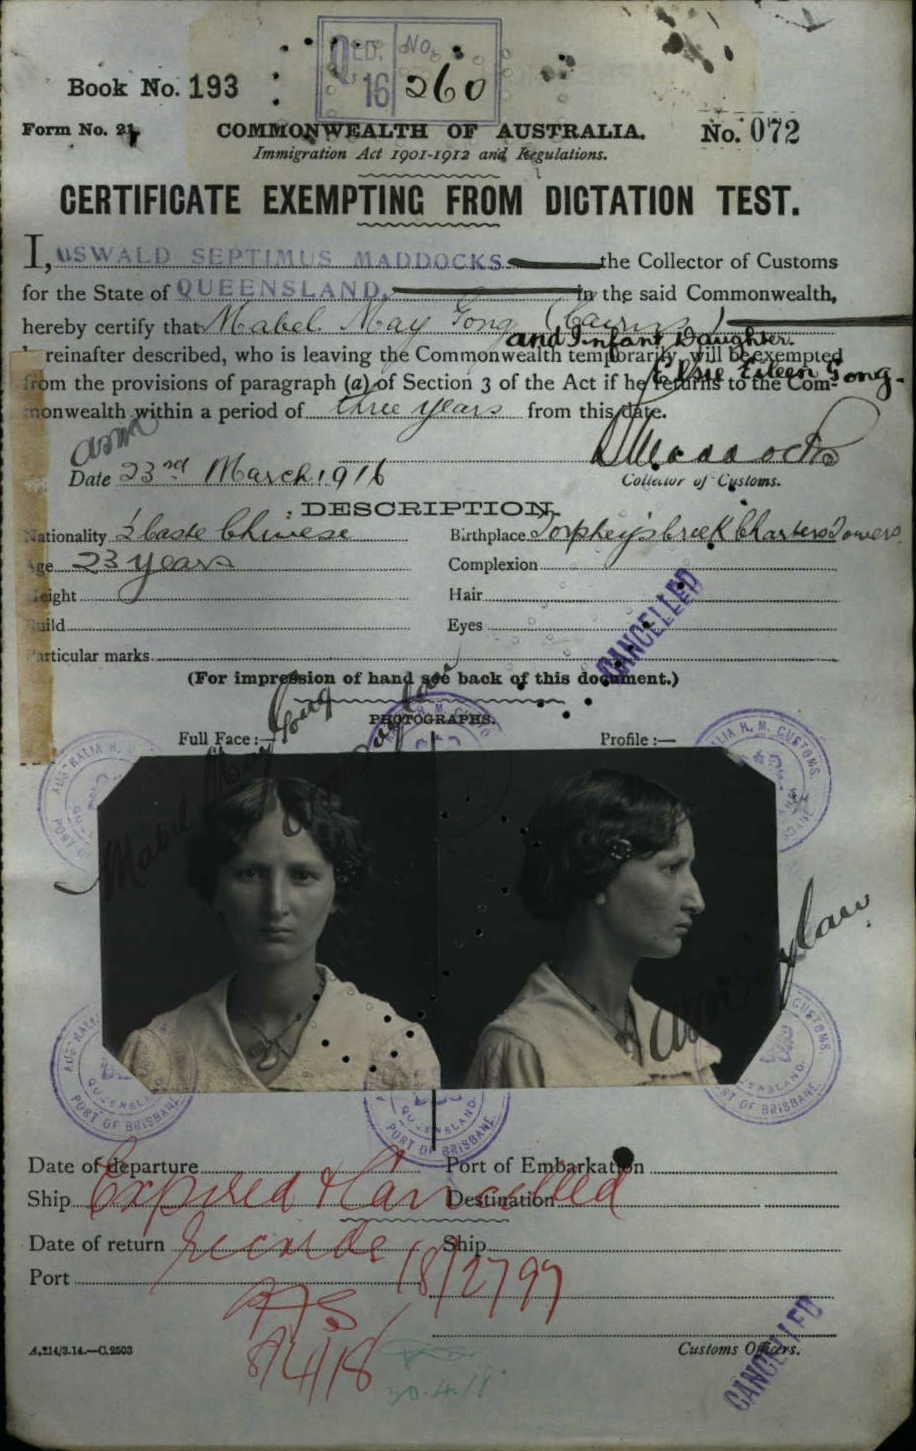 QLD. No.
16 260
Book No. 193
Form No. 21.
COMMONWEALTH OF AUSTRALIA.
No. 072
Immigration Act 1901-1912 and Regulations.
CERTIFICATE EXEMPTING FROM DICTATION TEST.
I, OSWALD SEPTIMUS MADDOCKS the Collector of Customs
for the State of QUEENSLAND, in the said Commonwealth,
hereby certify that Mabel May Gong (Cairns)
and Infant Daughter
reinafter described, who is leaving the Commonwealth temporarily, will be exempted
Elsie Eileen Gong.
from the provisions of paragraph (a) of Section 3 of the Act if he returns to the Com-
monwealth within a period of three years from this date.
Date 23rd March 1916
Collector of Customs.
DESCRIPTION.
Nationality ½ Caste Chinese Birthplace Torpheys Creek Charters Towers
Age 23 years Complexion
Height Hair
Build Eyes
CANCELLED
Particular marks
(For impression of hand see back of this document.)
PHOTOGRAPHS.
Full Face :— Profile :—
Mabel May Gong
AUSTRALIA H. M. CUSTOMS.
PORT OF BRISBANE
QUEENSLAND
Date of departure Port of Embarkation
Ship Destination
Expired & Cancelled
Date of return Ship
Records 18/2799
Port
8/4/18
30.4.18
A.214/3.14.—C.2503
Customs Officers.
CANCELLED